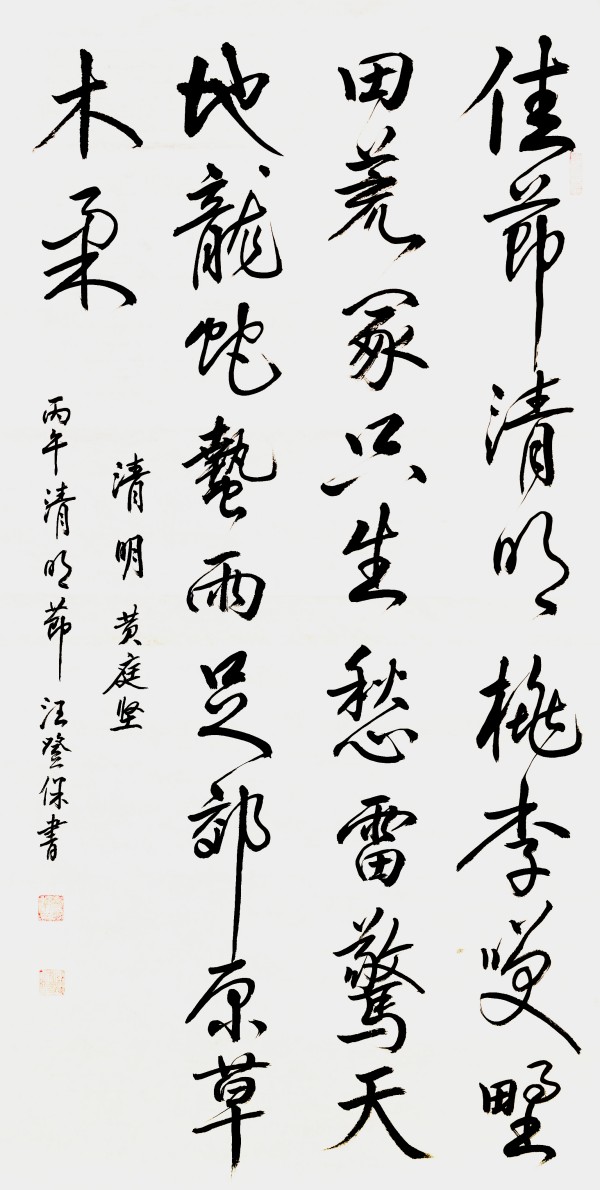 佳節清明桃李笑野
田荒冢只生愁雷驚天
地龍蛇蟄雨足郊原草
木柔
清明 黄庭坚
丙午清明節汪登保書